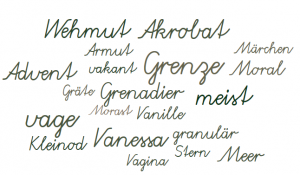 Wehmut Akrobat
Armut Märchen
Advent vakant Grenze Moral
Gräte Grenadier meist
Morast Vanille
vage
Kleinod Vanessa granulär
Stern Meer
Vagina